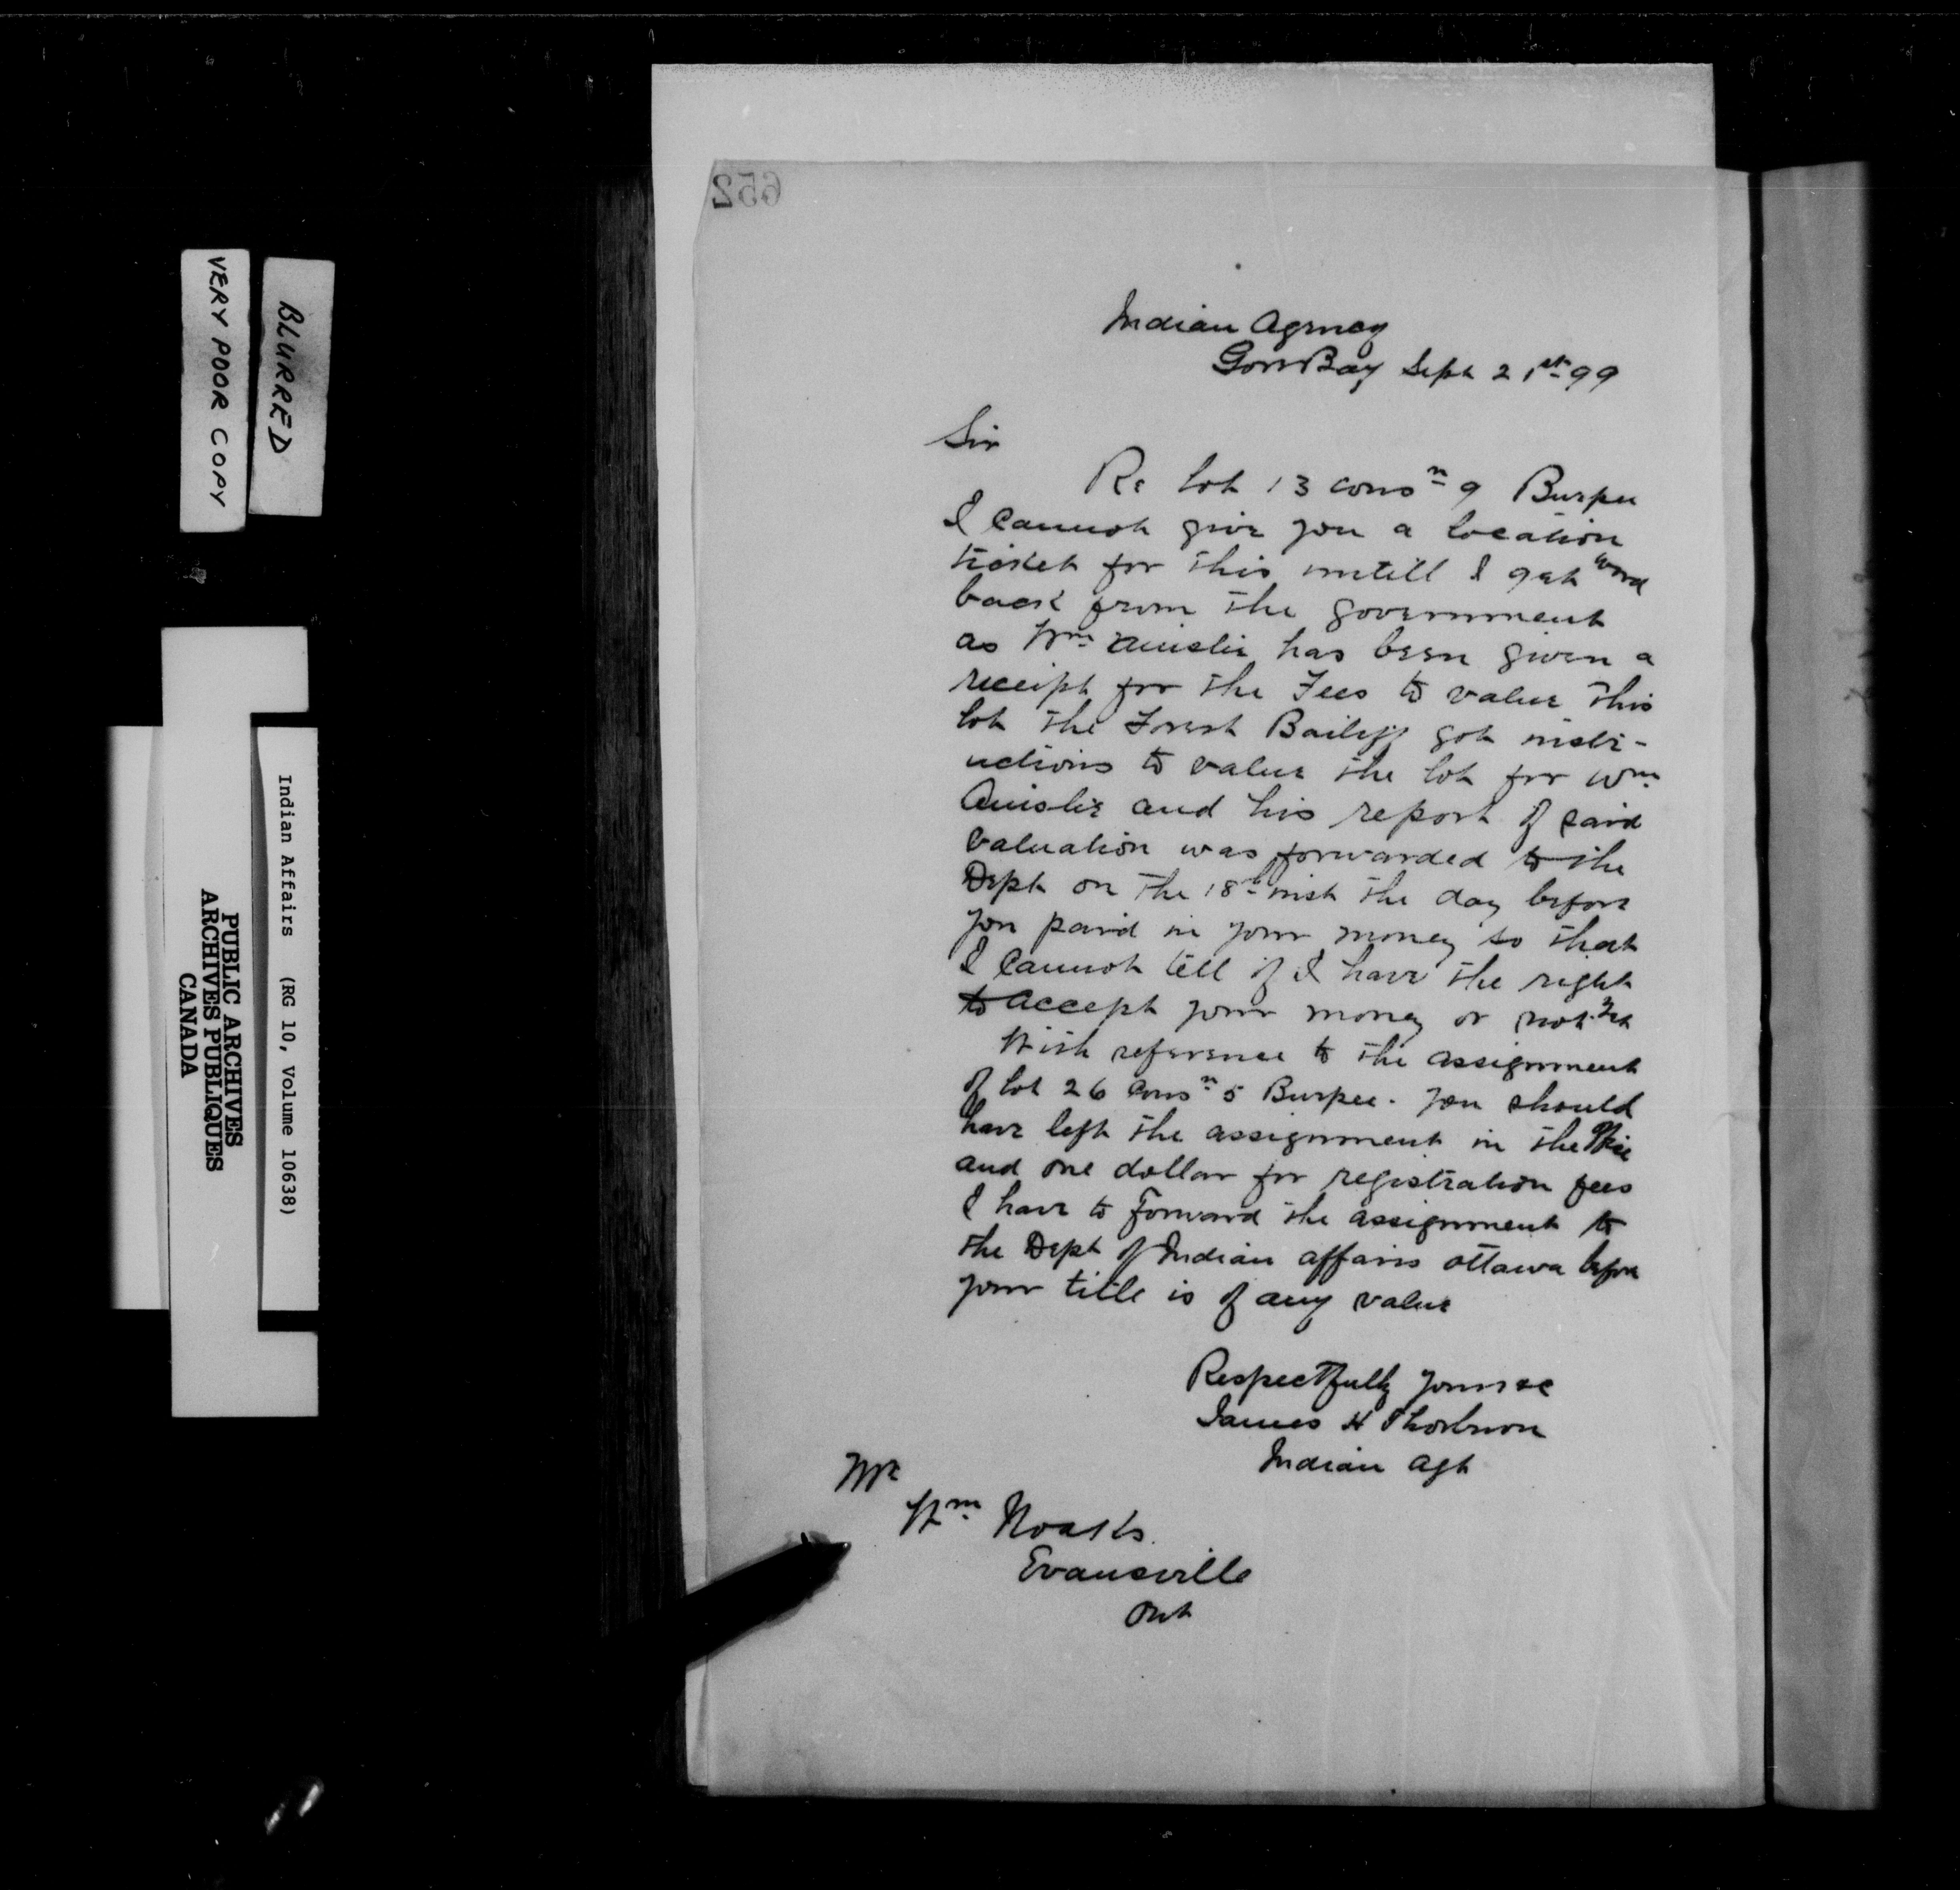 652
Indian Agency
Gore Bay Sept 21st 99
Sir
Re lot 13 consn 9 Burpee
I cannot give you a location
ticket for this untill I get word
back from the government
as Wm Ainslie has been given a
receipt for the Fees to value this
lot the Forest Bailiff got instr-
uctions to value the lot for Wm
Ainslie and his report of said
valuation was forwarded to the
Dept on the 18th inst the day before
you paid in your money so that
I cannot tell if I have the right
to accept your money or not yet
With reference to the assignment
of lot 26 Consn 5 Burpee. you should
have left the assignment in the office
and one dollar for registration fees
I have to Forward the assignment to
the Dept of Indian affairs Ottawa before
your title is of any value
Respectfully yours &c
James H Thorburn
Indian Agt
Mr
Wm Noaks.
Evansville
Ont
BLURRED
VERY POOR COPY
Indian Affairs (RG 10, Volume 10638)
PUBLIC ARCHIVES
ARCHIVES PUBLIQUES
CANADA